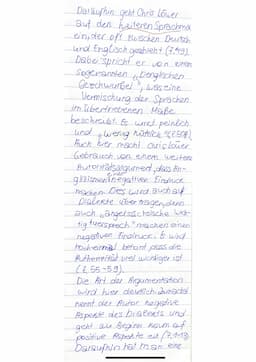 Daraufhin geht Chris Löwer
auf den weiteren Sprachma
ein, der oft zwischen Deutsch
und Englisch geschieht (Z.49).
Dabei spricht er von einem
sogenannten „Denglischen
Geschwurbel", was eine
Vermischung der Sprachen
im übertriebenen Maße
beschreibt. Es wird peinlich
und „wenig nützlich"
Auch hier macht Chris Löwer
Gebrauch von einem weiteren
Autoritätsargument, dass An-
glizismen einen negativen Eindruck
machen. Dies wird auch auf
Dialekte übertragen, denn
auch
machen einen
negativen Eindruck. Es wird
nochmal betont, dass die
Authentizität viel wichtiger ist
(Z. 55-59).
Die Art der Argumentation
wird hier deutlich. Zunächst
nennt der Autor negative
Aspekte des Dialekts und
geht zu Beginn kaum auf
positive Aspekte ein
Daraufhin hat man eine